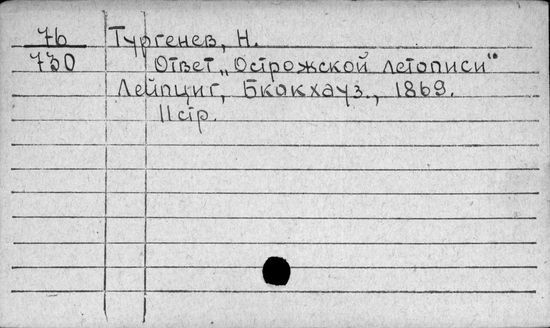 76 Тургенев, Н.
730 Ответ „Острожской летописи“
Лейпциг, Бкокхауз., 1869.
11 стр.